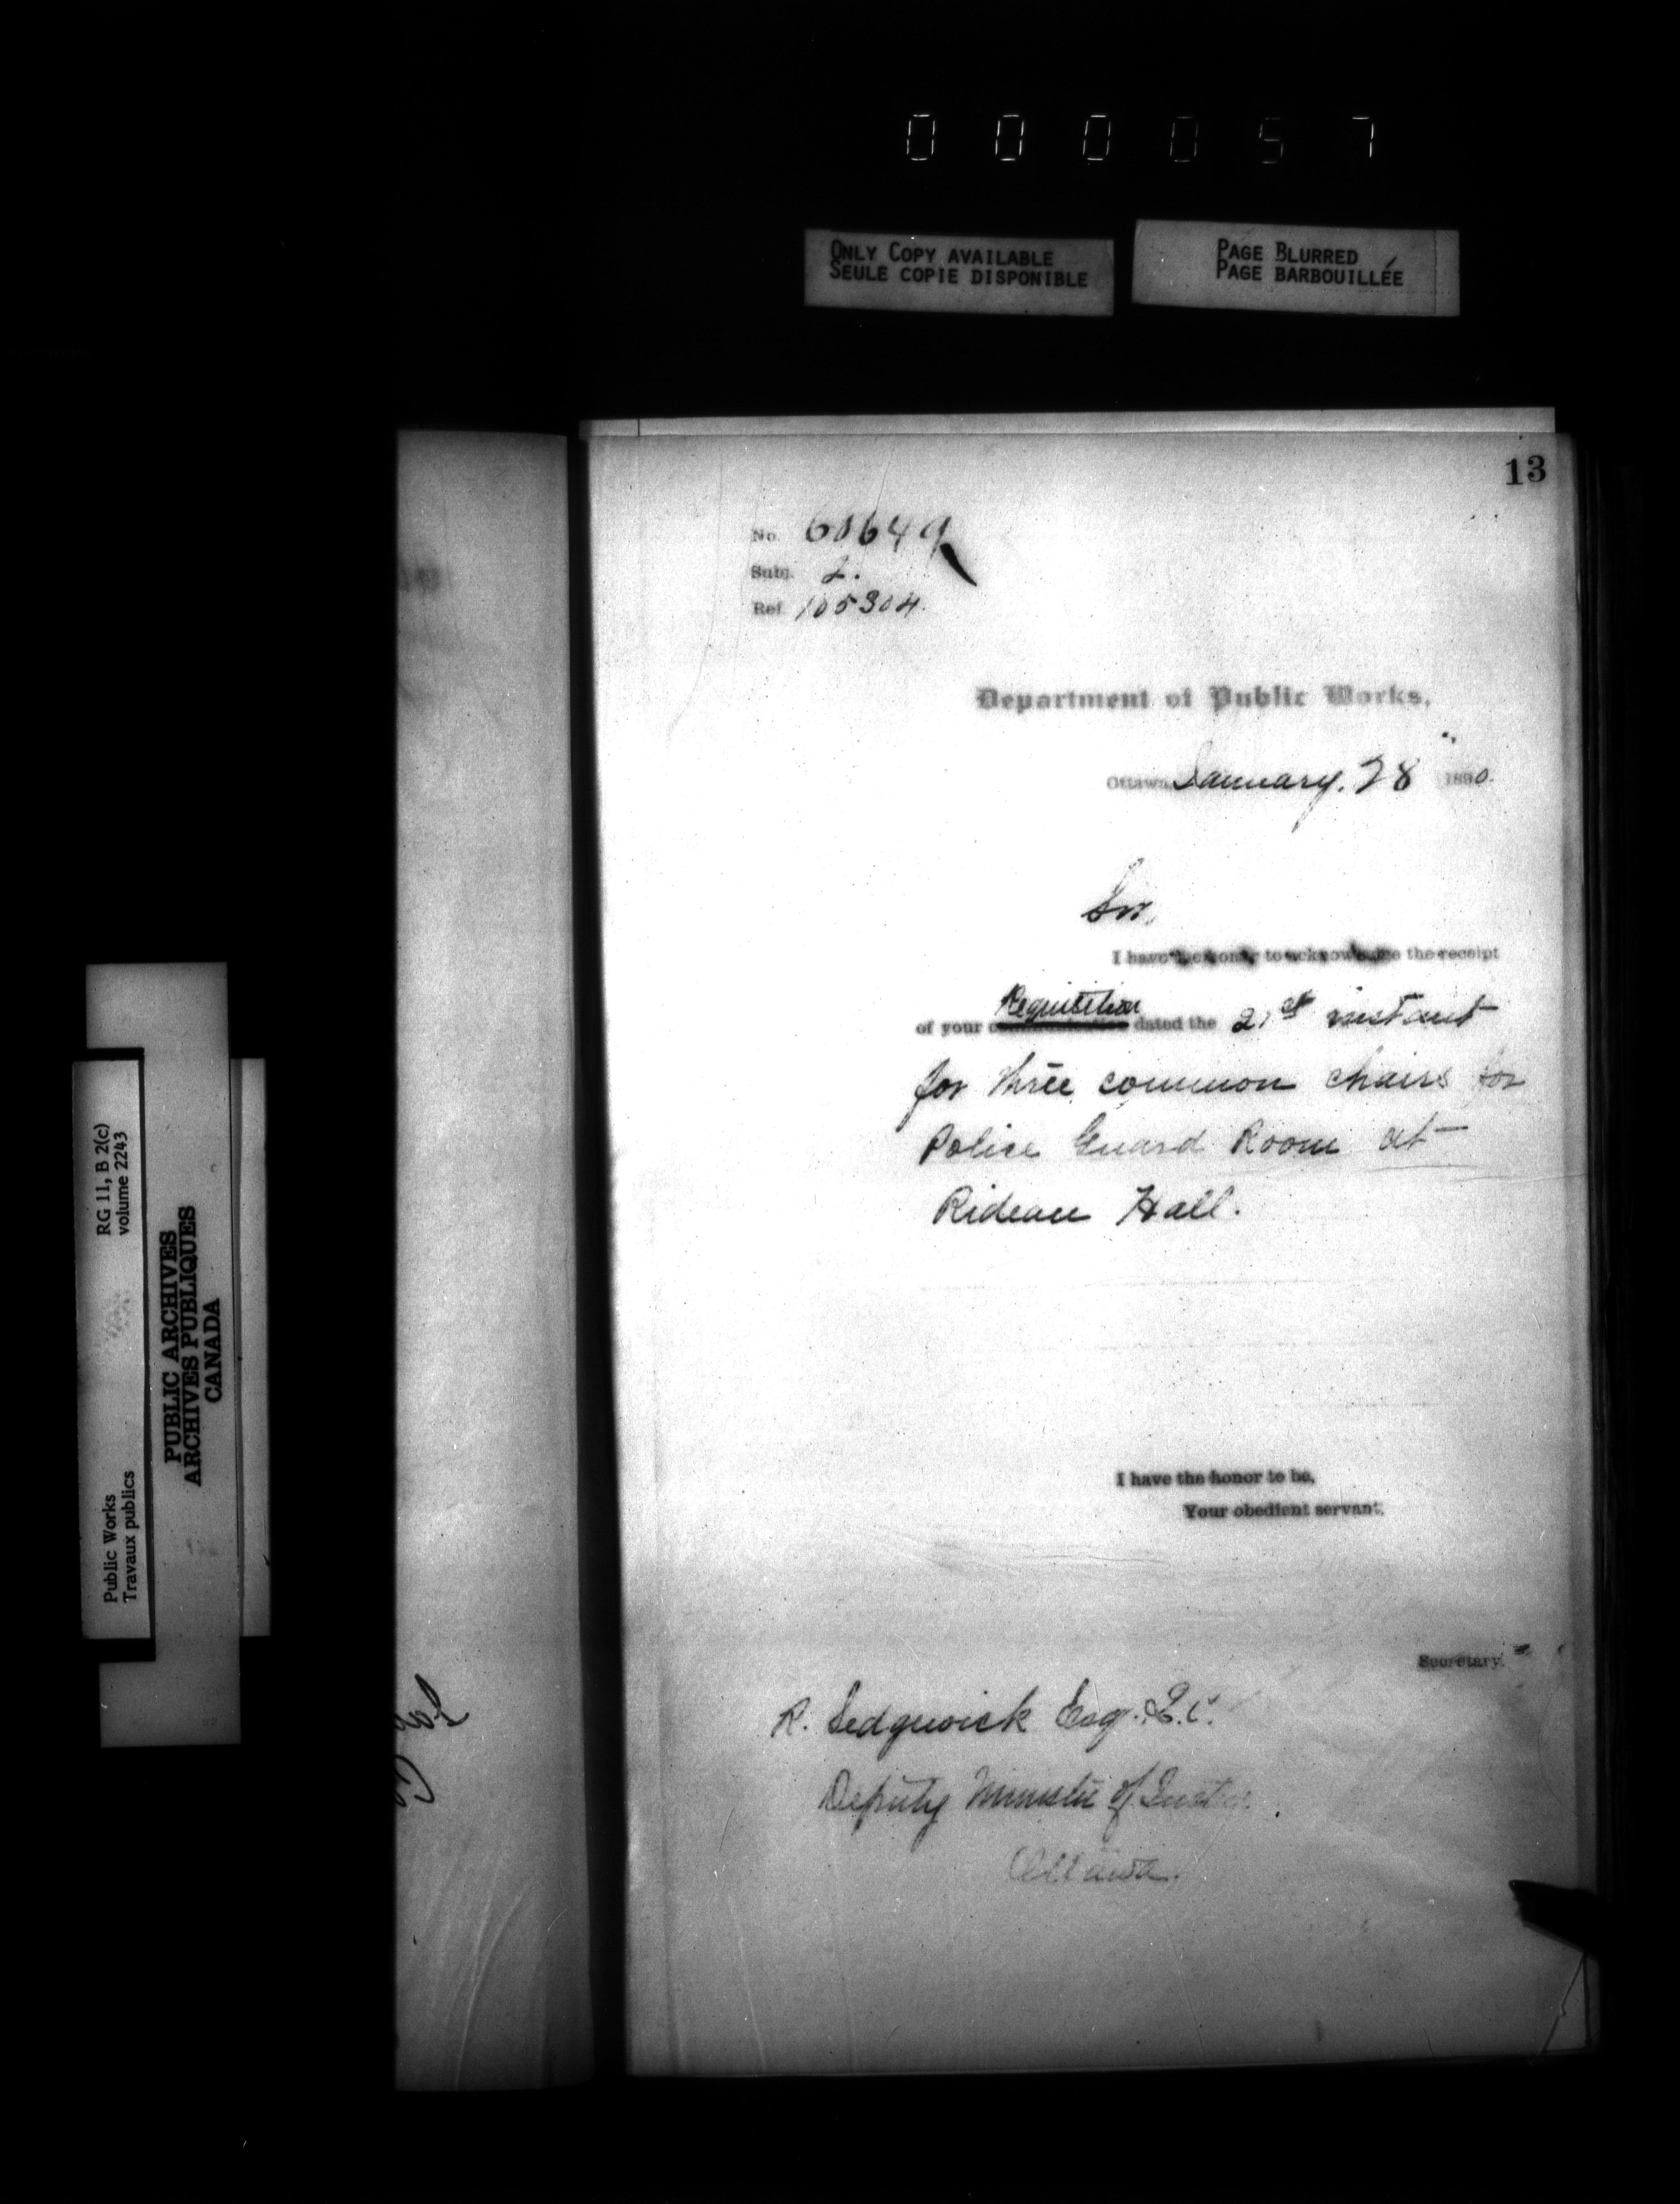 000057
ONLY COPY AVAILABLE
SEULE COPIE DISPONIBLE
PAGE BLURRED
PAGE BARBOUILLÉE
13
No. 60649
Subj. 2.
Ref. 105304.
Department of Public Works,
Ottawa, January. 28 1890.
Sir,
I have the honor to acknowledge the receipt
Requisition
of your communication dated the 21st instant
for three common chairs for
Police Guard Room at
Rideau Hall.
I have the honor to be,
Your obedient servant,
Secretary.
R. Sedgewick Esq. Q.C.
Deputy Minister of Justice.
Ottawa.
RG 11, B 2(c)
volume 2243
Public Works
Travaux publics
PUBLIC ARCHIVES
ARCHIVES PUBLIQUES
CANADA